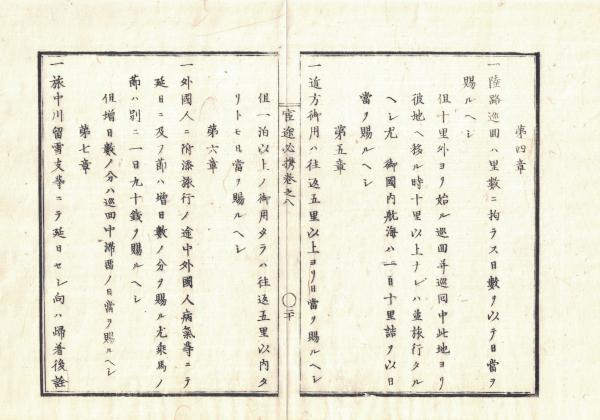 第四章
一陸路巡回ハ里數ニ拘ラス日數ヲ以テ日當ヲ
賜ルヘシ
但十里外ヨリ始ル巡回并巡回中此地ヨリ
彼地ヘ移ル時十里以上ナレハ並旅行タル
ヘシ尤御國内航海ハ一日百十里詰ヲ以日
當ヲ賜ルヘシ
第五章
一近方御用ハ往返五里以上ヨリ日當ヲ賜ルヘシ
官途必携巻之八
二十
但一泊以上ノ御用タラハ往返五里以内タ
リトモ日當ヲ賜ルヘシ
第六章
一外國人ニ附添旅行ノ途中外國人病氣等ニテ
延日ニ及ノ節ハ增日數ノ分ヲ賜ル尤乘馬ノ
節ハ別ニ一日九十錢ヲ賜ルヘシ
但增日數ノ分ハ巡回中滯畱ノ日當ヲ賜ルヘシ
第七章
一旅中川留雪支等ニテ延日セシ向ハ歸着後詮